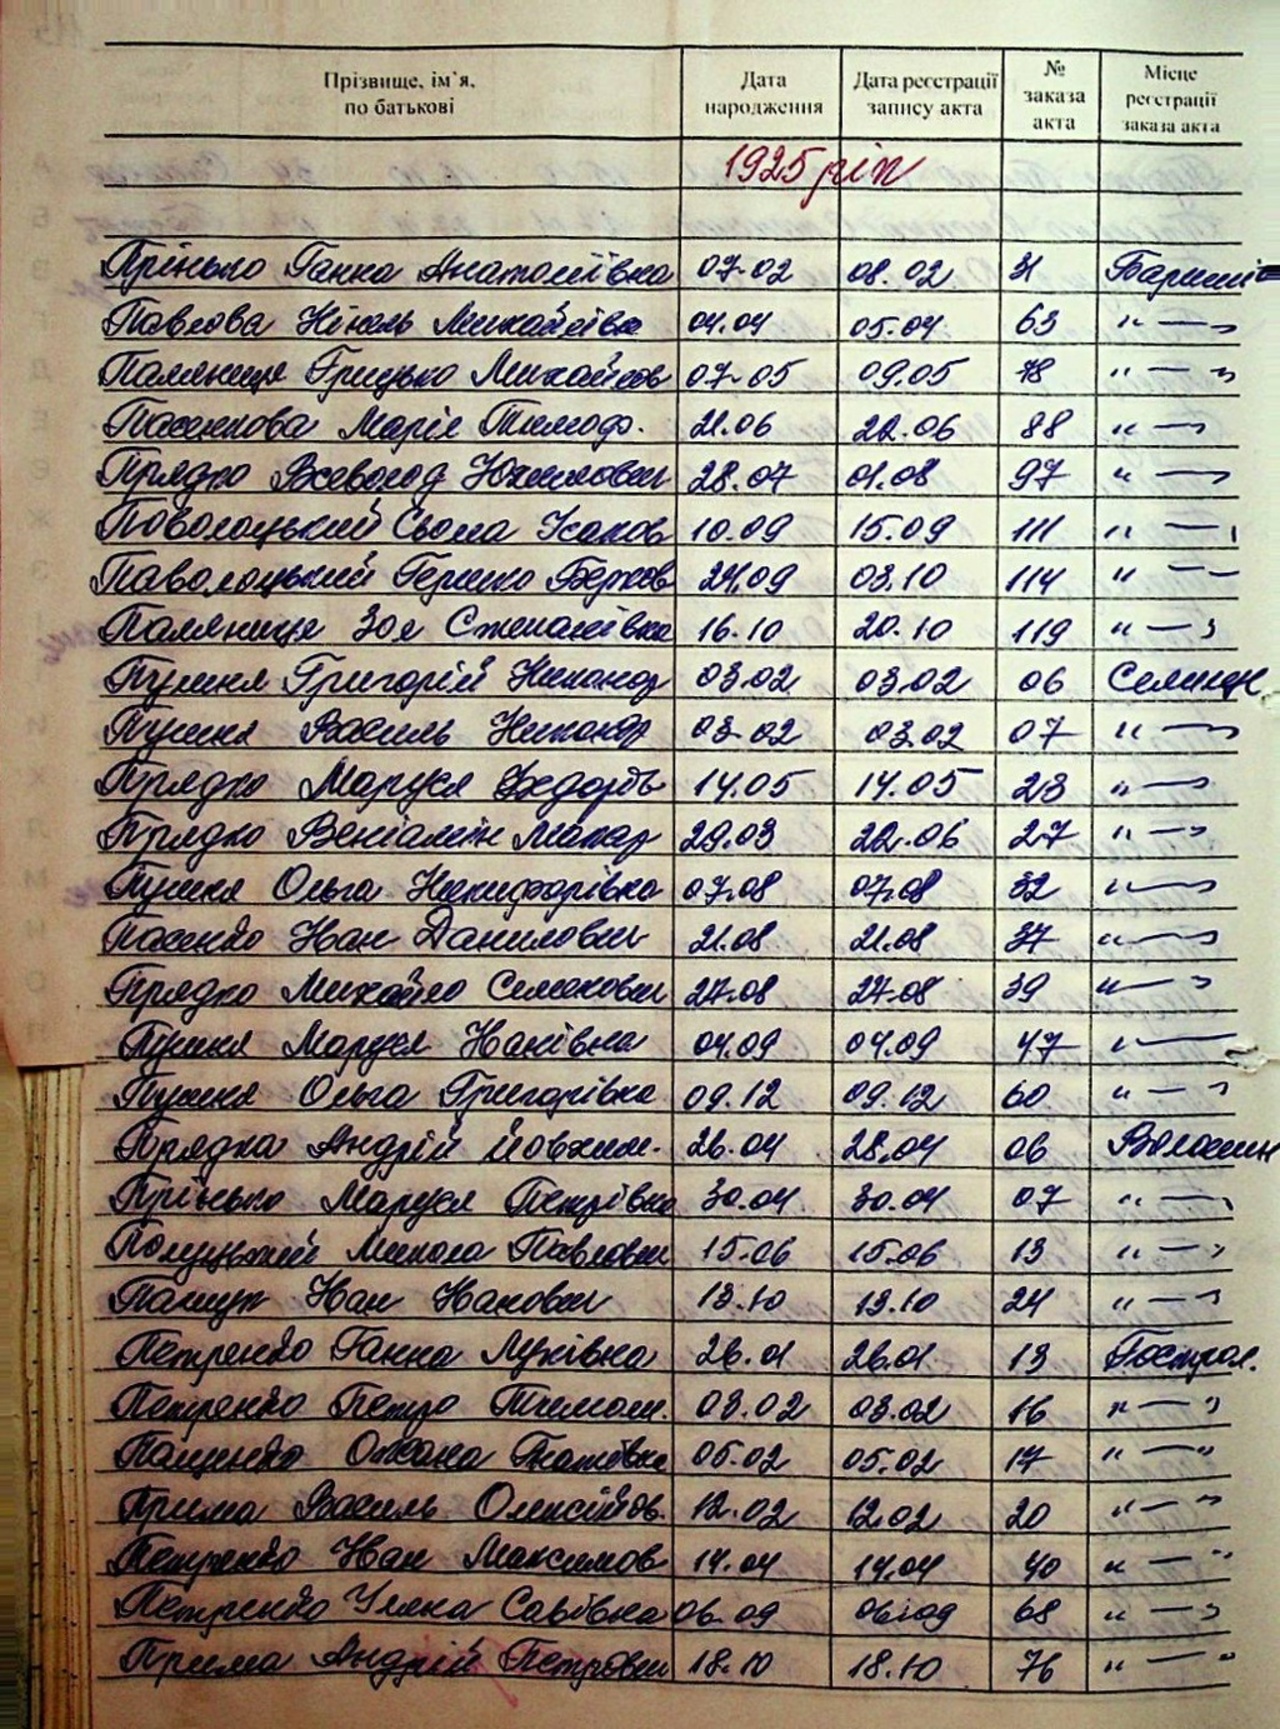 Прізвище, ім'я, по батькові | Дата народження | Дата реєстрації запису акта | № заказа акта | Місце реєстрації заказа акта
1925 рік
Прінько Ганна Анатоліївна 07.02 08.02 31 Баришів
Павлова Нінель Михайлівна 04.04 05.04 63 " — "
Паляниця Грицько Михайлов 07.05 09.05 78 " — "
Пасенкова Марія Тимоф. 21.06 22.06 88 " — "
Прядко Всеволод Юхимович 28.07 01.08 97 " — "
Поволоцький Сьома Ісаков 10.09 15.09 111 " — "
Паволоцький Гершко Берков 24.09 03.10 114 " — "
Паляниця Зоя Степанівна 16.10 20.10 119 " — "
Пушня Григорій Никанор 03.02 03.02 06 Селище
Пушня Василь Никанор 03.02 03.02 07 " — "
Прядко Маруся Федорів 14.05 14.05 23 " — "
Прядко Веніамін Макар 29.03 22.06 27 " — "
Пушня Ольга Никифорівна 07.08 07.08 32 " — "
Пасенко Іван Данилович 21.08 21.08 37 " — "
Прядко Михайло Семенович 27.08 27.08 39 " — "
Пушня Маруся Іванівна 04.09 04.09 47 " — "
Пушня Ольга Григорівна 09.12 09.12 60 " — "
Прядка Андрій Йовхим. 26.04 28.04 06 Волошин
Прінько Маруся Петрівна 30.04 30.04 07 " — "
Микола Павлович 15.06 15.06 13 " — "
Пащук Іван Іванович 13.10 13.10 24 " — "
Петренко Ганна Луківна 26.01 26.01 13 Гострол.
Петренко Петро Тимош. 03.02 03.02 16 " — "
Пащенко Оксана Гнатівна 05.02 05.02 17 " — "
Прима Василь Олексійов. 12.02 12.02 20 " — "
Петренко Іван Максимов 14.04 14.04 40 " — "
Петренко Уляна Савівна 06.09 06.09 68 " — "
Прима Андрій Петрович 18.10 18.10 76 " — "